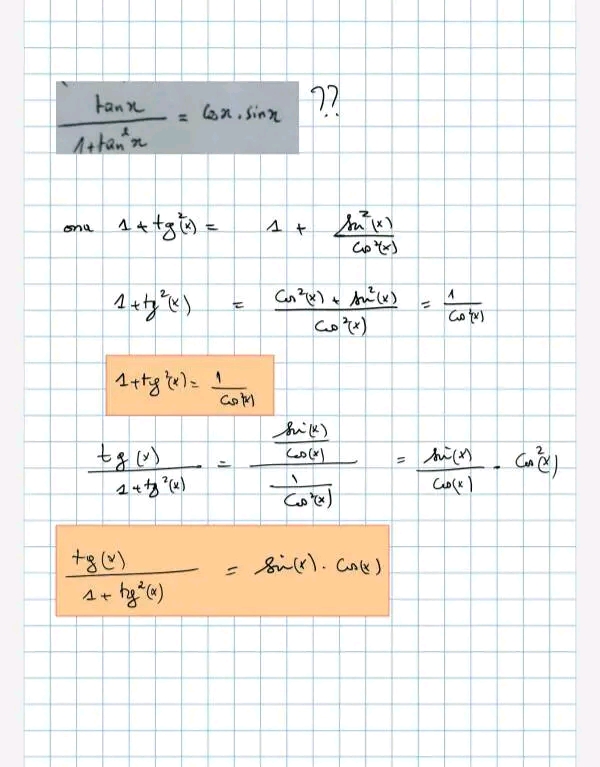 tan x / 1+tan²x = cos x . sin x ??
ona 1 + tg²(x) = 1 + sin²(x) / cos²(x)
1 + tg²(x) = cos²(x) + sin²(x) / cos²(x) = 1 / cos²(x)
1 + tg²(x) = 1 / cos²(x)
tg(x) / 1 + tg²(x) = sin(x) / cos(x) / 1 / cos²(x) = sin(x) / cos(x) . cos²(x)
tg(x) / 1 + tg²(x) = sin(x) . cos(x)